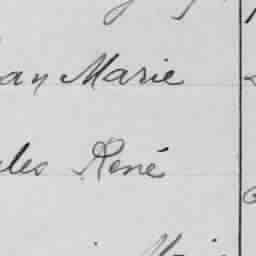 an Marie
les René